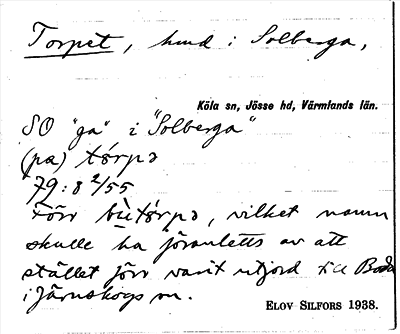 Torpet, hmd i Solberga,
Köla sn, Jösse hd, Värmlands län.
SO "ga" i "Solberga"
(pa) tórpə
79:8 2/55
Förr bùtórpə, vilket namn
skulle ha föranletts av att
stället förr varit utjord till Boda
i Järnskogs sn.
ELOV SILFORS 1938.